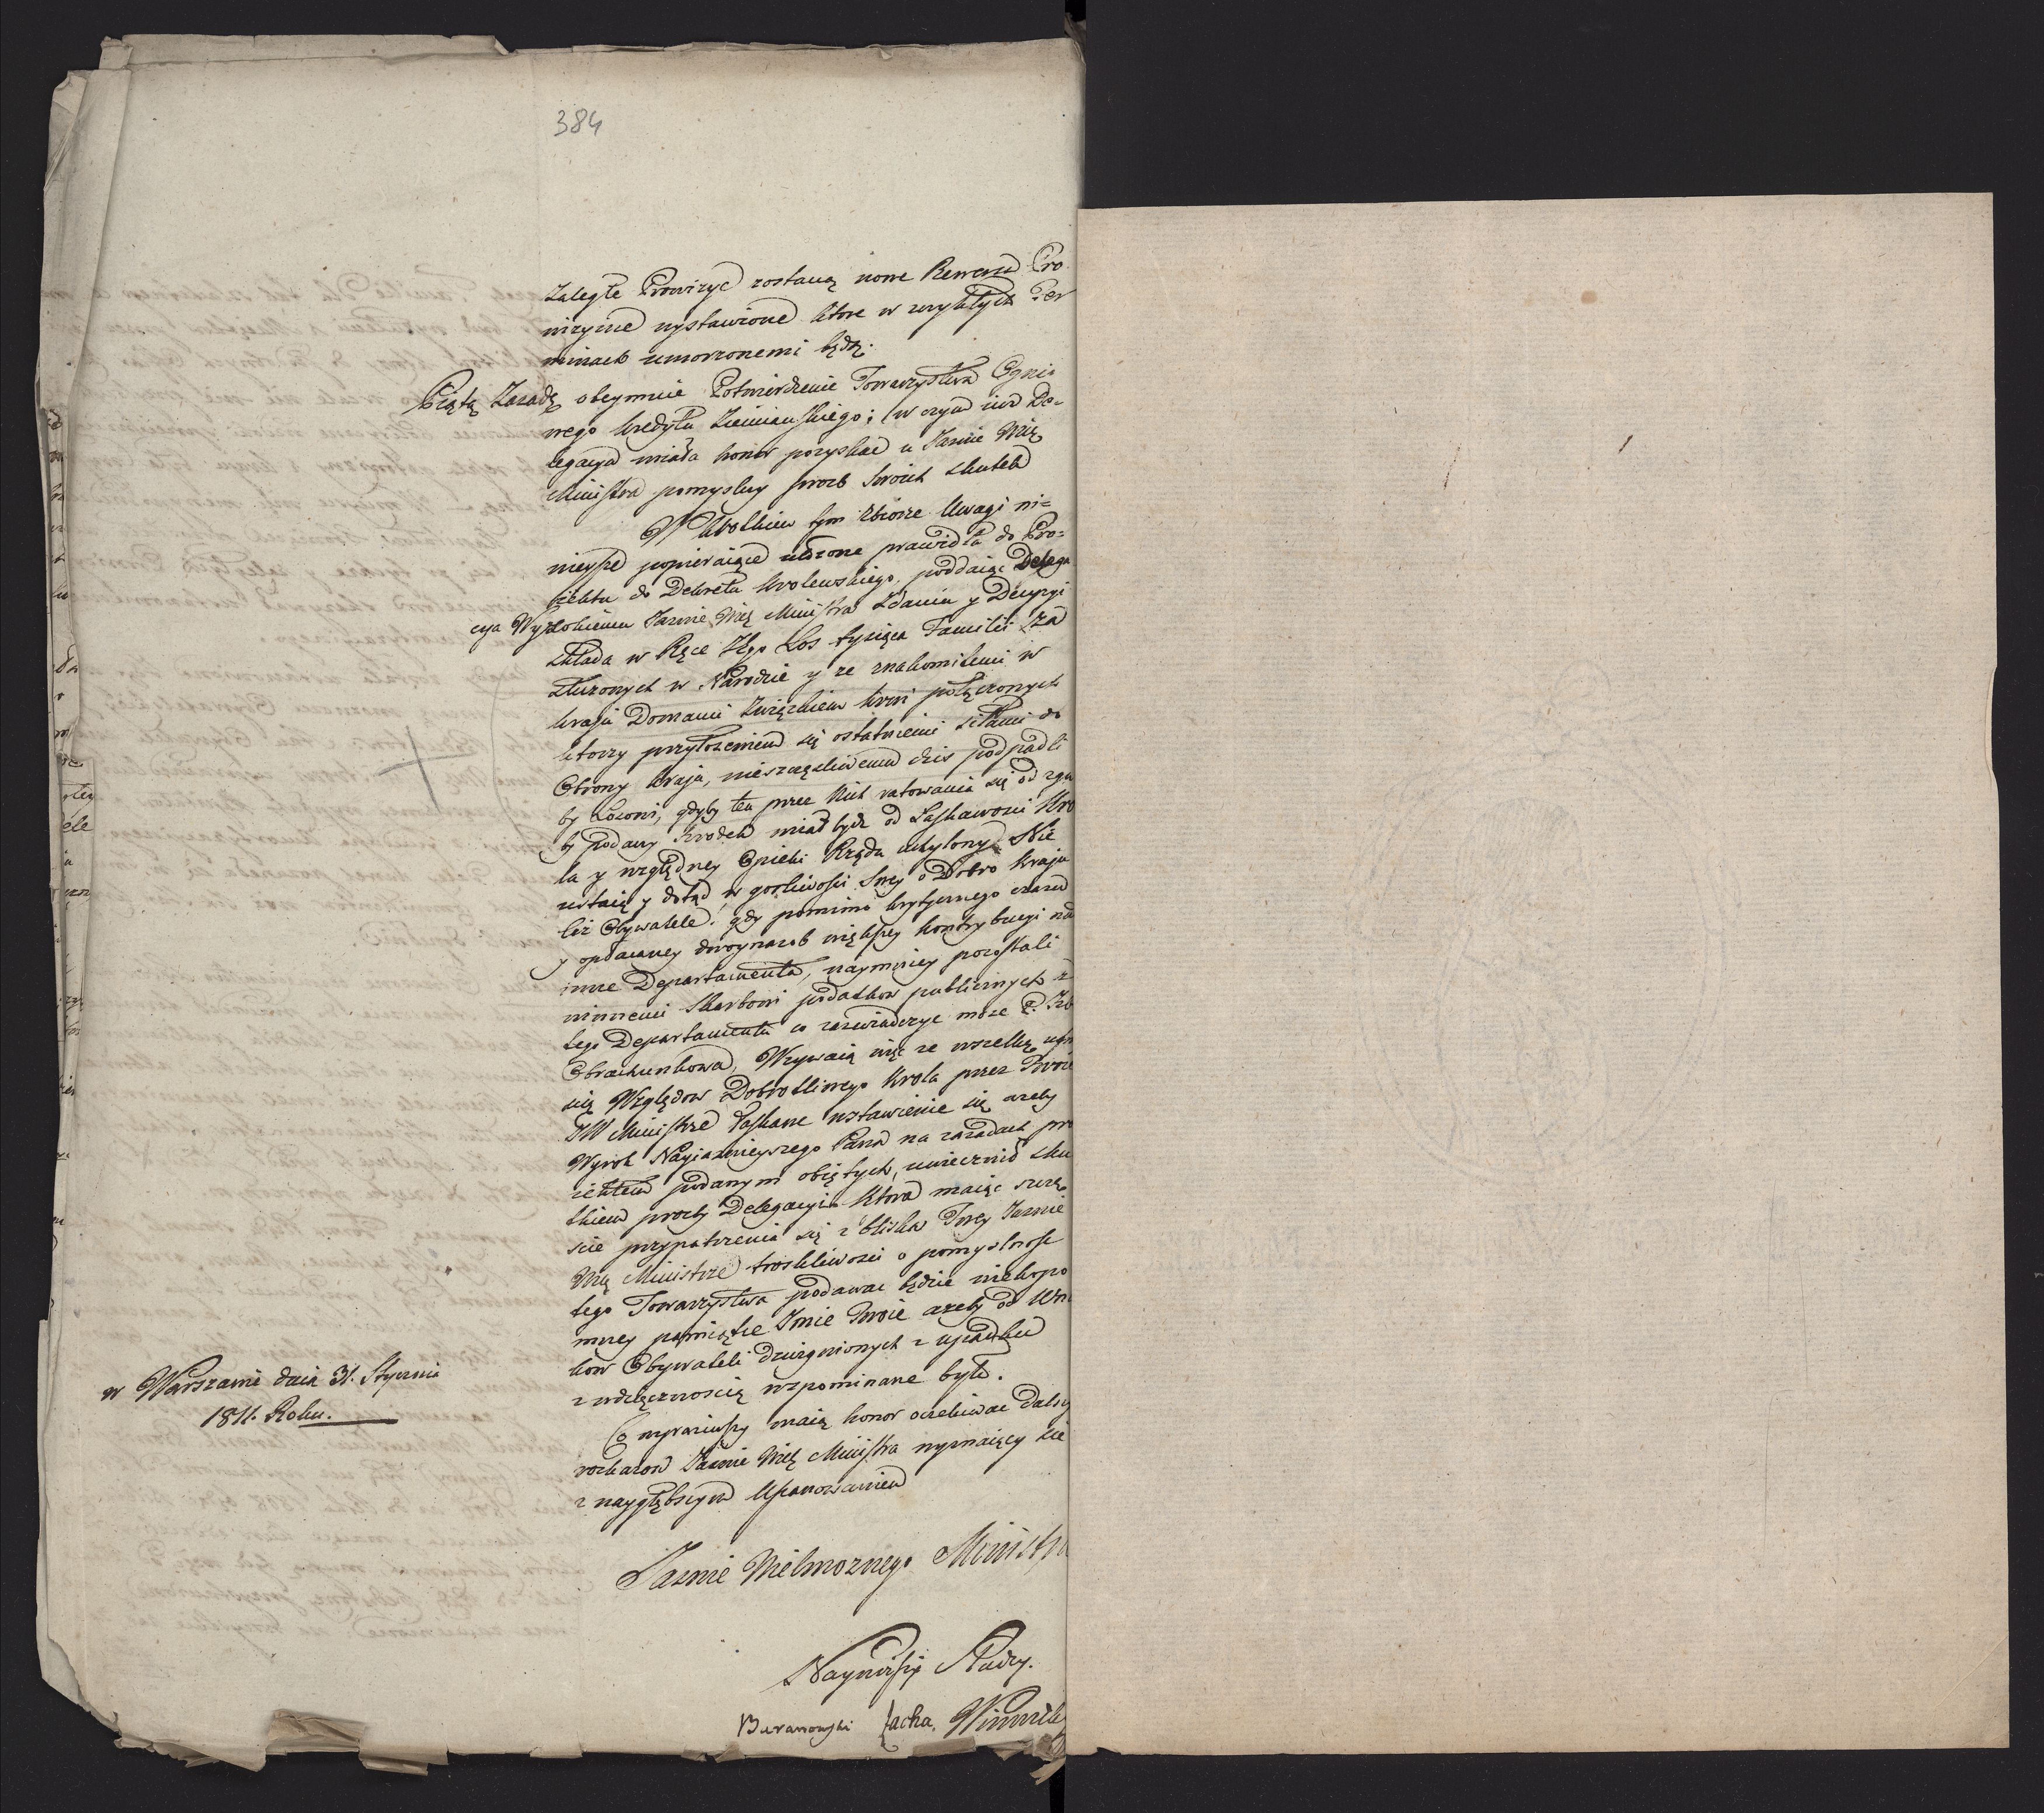 384
Zaległe Prowizye zostaną nowe Rewersa Pro
wizyine wystawione które w zwykłych Ter
minach umorzonemi będą.
Piątą Zasadę obeymuie Potwierdzenie Towarzystwa Ognio
wego kredytu Ziemiańskiego; w czym iuż De-
legacya miała honor pozyskać u Jaśnie Wiel.
Ministra pomyslny prozb swoich skutek
W krotkim tym zbiorze Uwagi ni=
nieysze popieraiące prawidła do Pro=
iektu do Dekretu Krolewskiego, poddaiąc Delega
cya Jaśnie Wiel Ministra Zdaniu y Decyzyi
składa w Ręce Jego Los tysiąca Familii Za
służonych w Narodzie y ze znakomitemi w
kraju Domami Związkiem krwi połączonych
ktorzy przyłożeniem się ostatniemi siłami do
Obrony kraju, nieszczęsliwemu dzis podpadli
by Losowi, gdyby ten przez Nich ratowania się od zgu
by podany Srodek miał bydz od Łaskawosci Kro
la y względney Opieki Rządu uchylony. Nie
ustaią y dotąd w gorliwości swey o Dobro kraju
ciż Obywatele, gdy pomimo krytycznego czasu
y opłacaney dwoynasob większey kontrybucyi nad
inne Departamenta, naymniey pozostali
winnemi Skarbowi podatkow publicznych z
tego Departamentu co zaswiadczyc może
Obrachunkowa, Wzywaią więc ze wszelką
się Względow Dobrotliwego Krola przez Twoie
JW Ministrze łaskawe wstawienie się ażeby
Wyrok Nayiasnieyszego Pana na zasadach pro
iektem podanym obiętych, uwiecznił sku
tkiem prozby Delegacyi. Ktora maiąc szczę
scie przypatrzenia się z bliska Twey Jaśnie
Wiel Ministrze troskliwości o pomyslnosc
tego Towarzystwa podawac będzie niekpo
mney pamiątce Imie Twoie azeby od Wnu
kow Obywateli dzwignionych z upadku
z wdzięcznoscią wzpominane było.
Co wyraziwszy maią honor oczekiwac dalszy
rozkazow Jaśnie Wiel Ministra wyznaiący się
z naygłębszym Uszanowaniem
w Warszawie dnia 31. Stycznia
1811. Roku.
Jaśnie Wielmoznego Ministra
Nayniżsi Słudzy.
Baranowski Łącka,